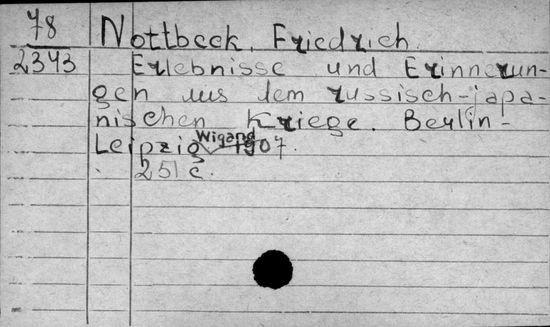 78
Nottbeck, Friedrich.
2343
Erlebnisse und Erinnerun-
gen aus dem russisch-japa-
nischen Kriege. Berlin-
Leipzig, Wigand 1907.
251 č.